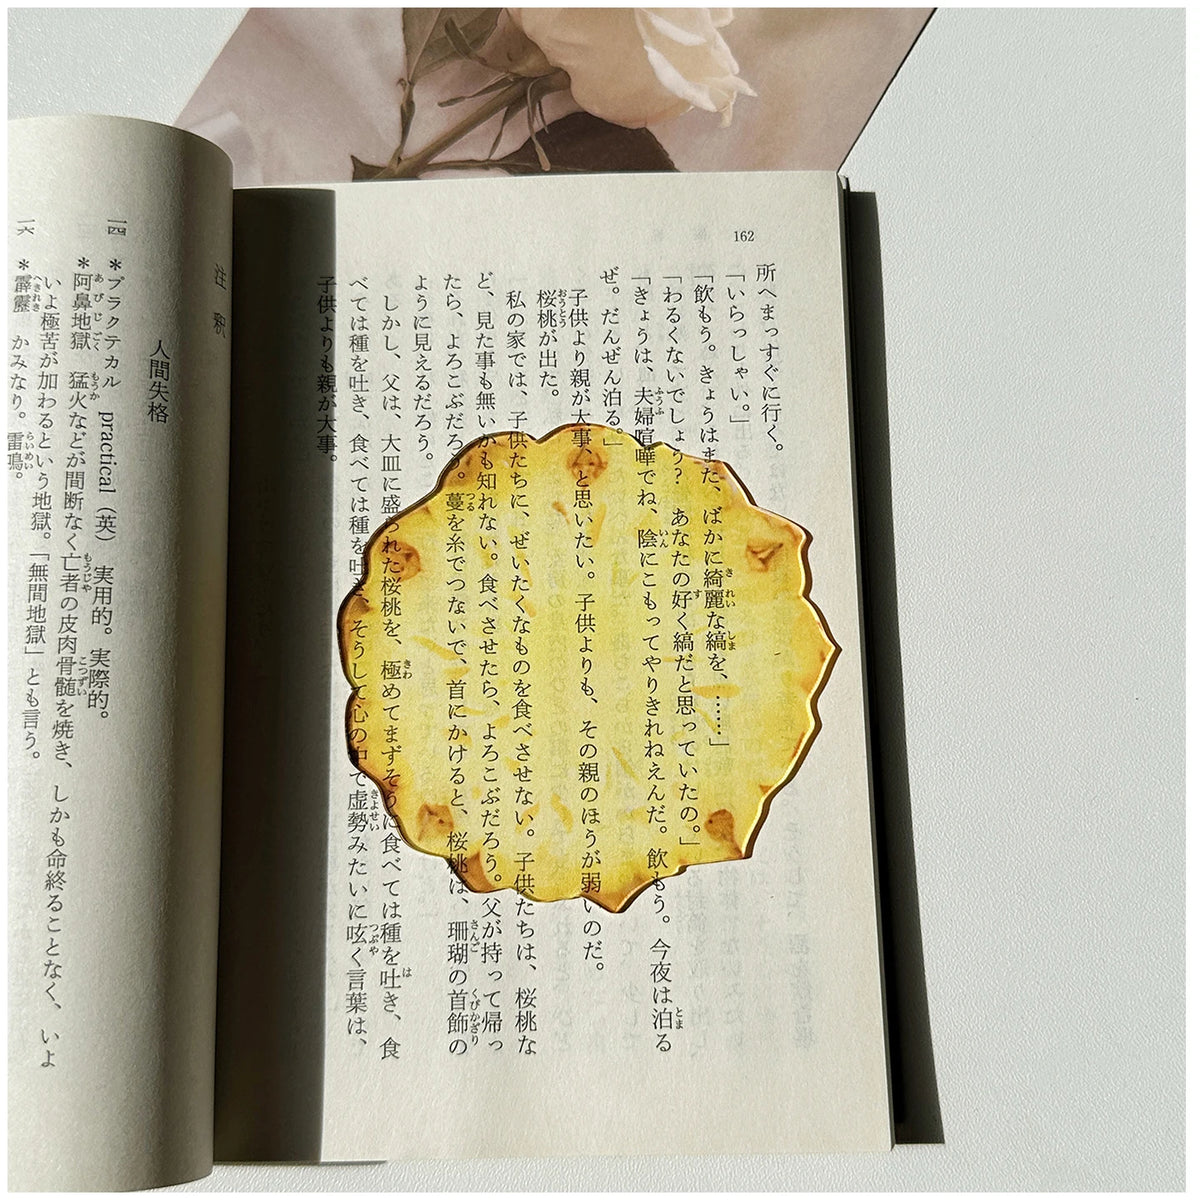 162
所へまっすぐに行く。
「いらっしゃい。」
「飲もう。きょうはまた、ばかに綺麗な縞を、……」
「わるくないでしょう？　あなたの好く縞だと思っていたの。」
「きょうは、夫婦喧嘩でね、陰にこもってやりきれねえんだ。飲もう。今夜は泊る
ぜ。だんぜん泊る。」
子供より親が大事、と思いたい。子供よりも、その親のほうが弱いのだ。
桜桃が出た。
私の家では、子供たちに、ぜいたくなものを食べさせない。子供たちは、桜桃な
ど、見た事も無いかも知れない。食べさせたら、よろこぶだろう。父が持って帰っ
たら、よろこぶだろう。蔓を糸でつないで、首にかけると、桜桃は、珊瑚の首飾の
ように見えるだろう。
しかし、父は、大皿に盛られた桜桃を、極めてまずそうに食べては種を吐き、食
べては種を吐き、食べては種を吐き、そうして心の中で虚勢みたいに呟く言葉は、
子供よりも親が大事。
注釈
人間失格
一四
＊プラクテカル　practical（英）　実用的。実際的。
＊阿鼻地獄　猛火などが間断なく亡者の皮肉骨髄を焼き、しかも命終ることなく、いよ
いよ極苦が加わるという地獄。「無間地獄」とも言う。
一六
＊霹靂　かみなり。雷鳴。